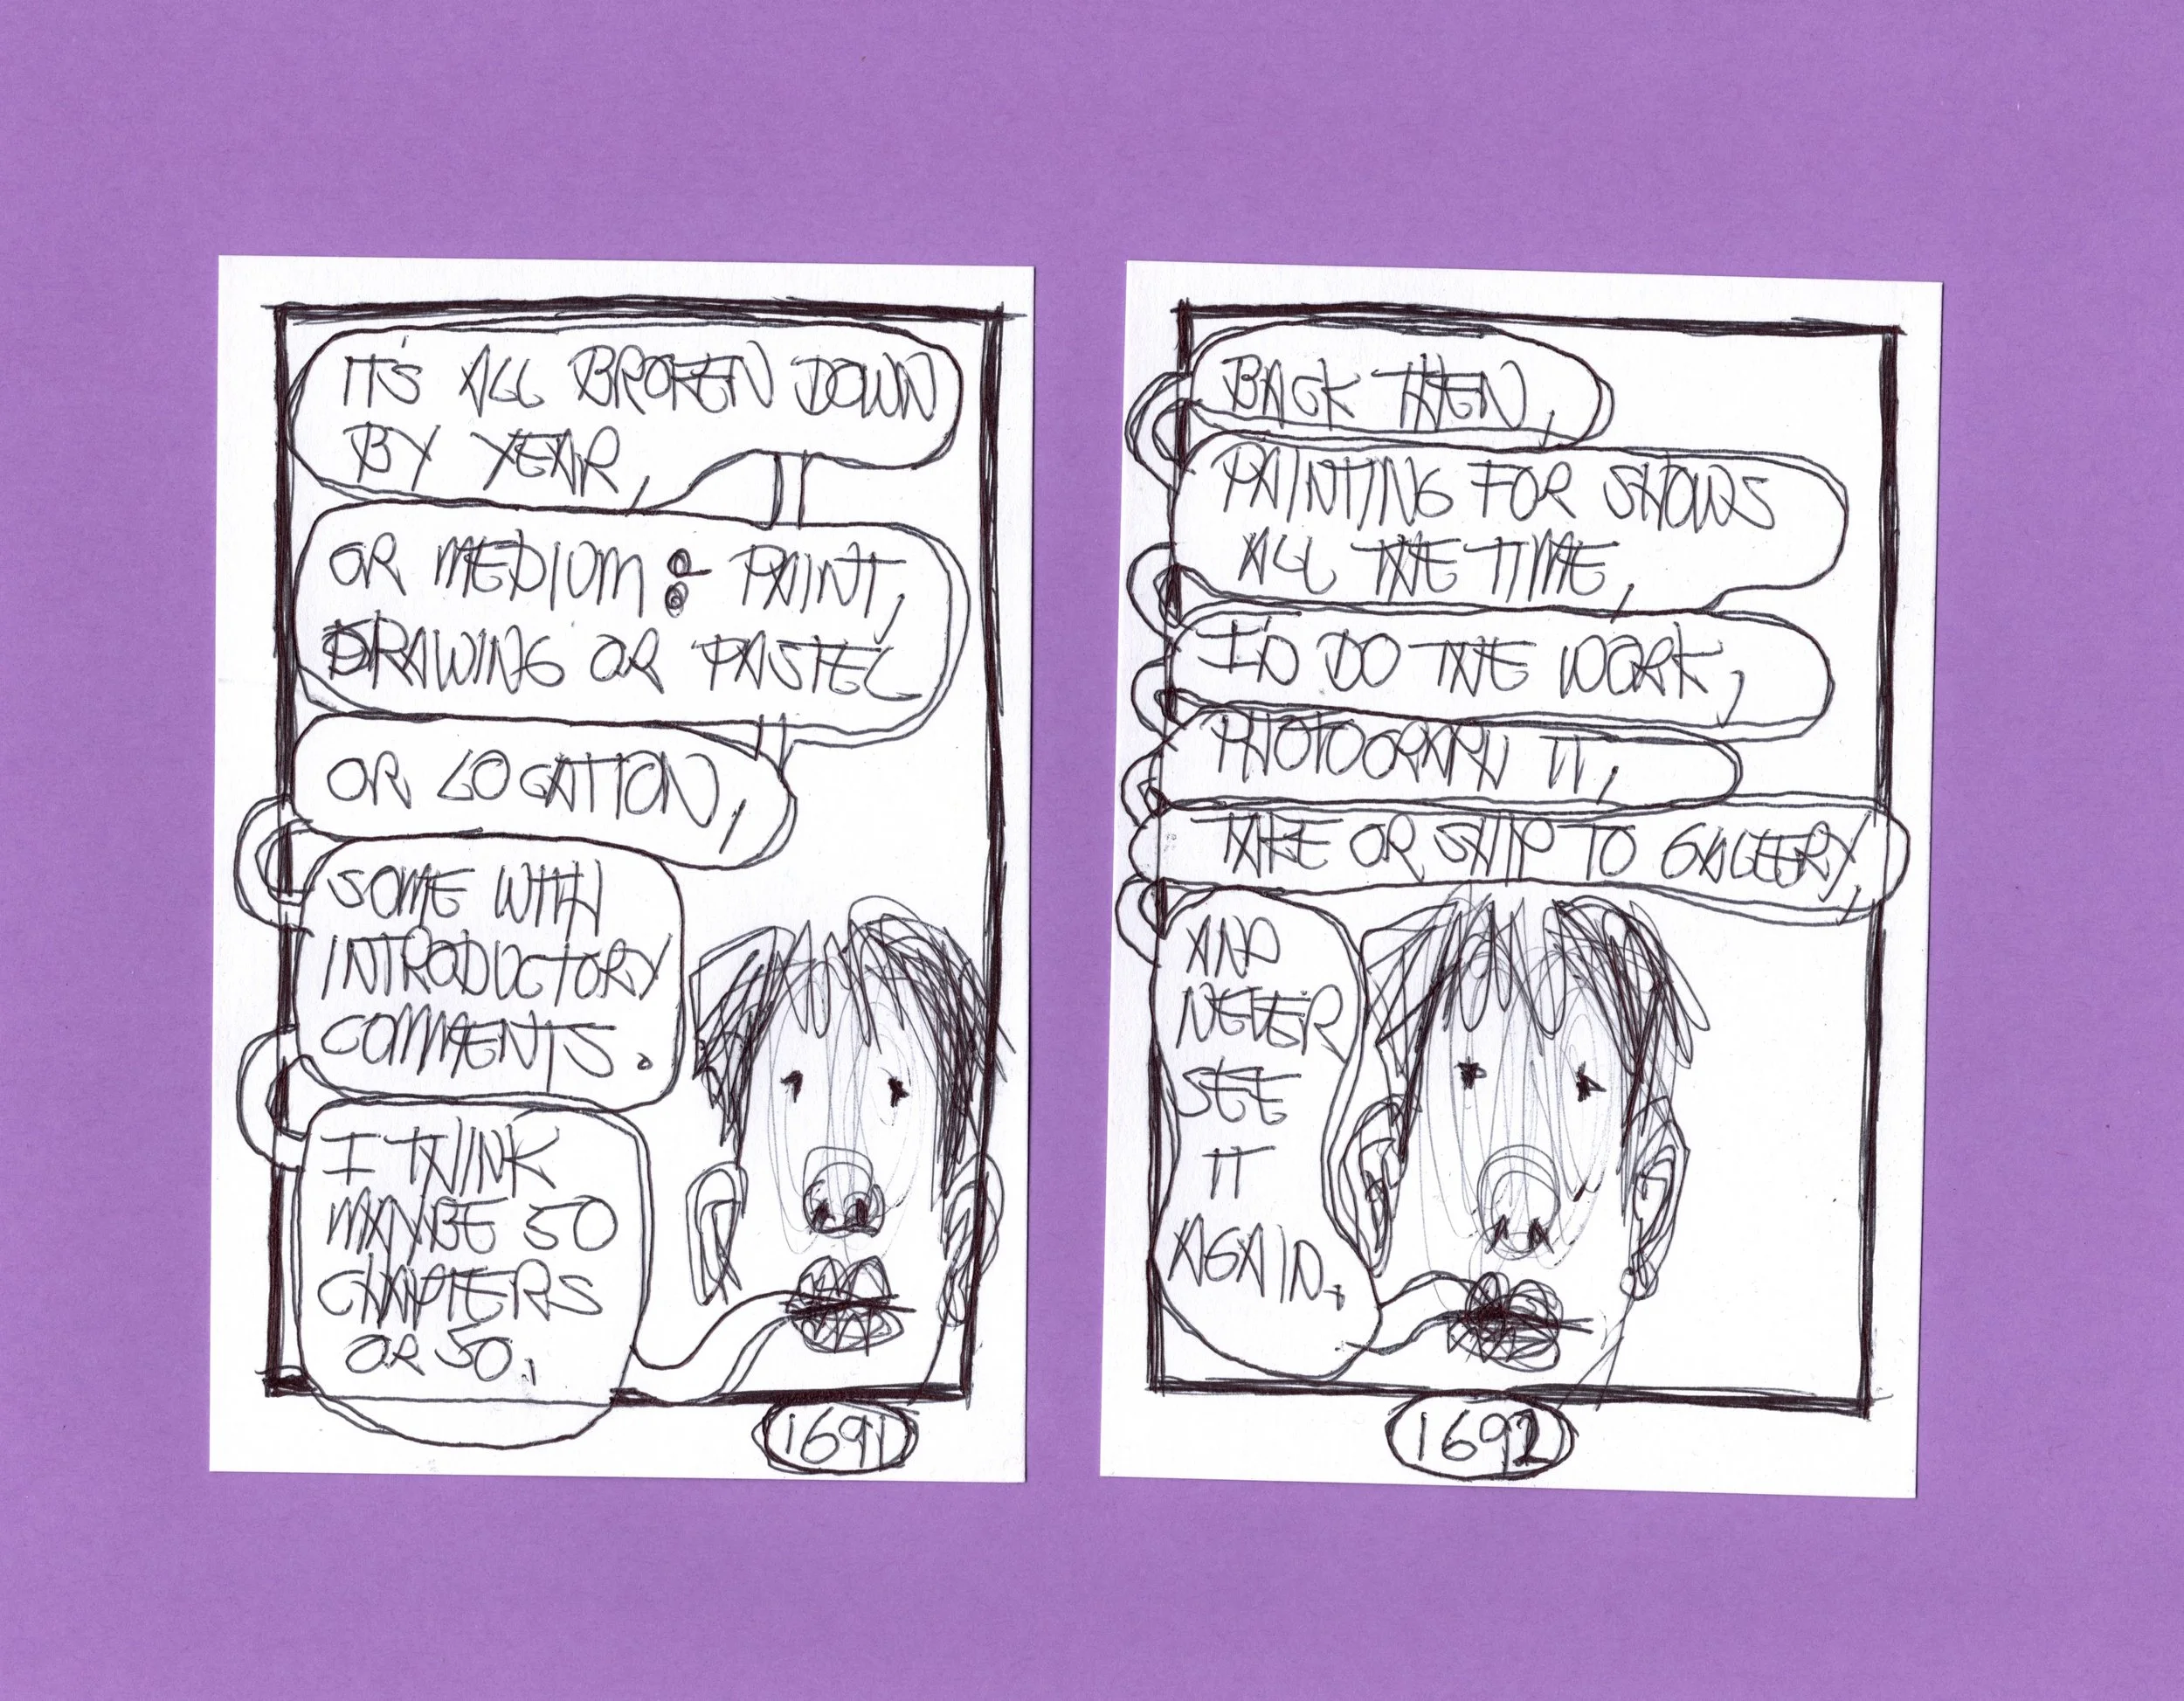 IT'S ALL BROKEN DOWN
BY YEAR,
OR MEDIUM: PAINT,
DRAWING OR PASTEL
OR LOCATION,
SOME WITH
INTRODUCTORY
COMMENTS.
I THINK
MAYBE 50
CHAPTERS
OR SO.
1691
BACK THEN,
PAINTING FOR SHOWS
ALL THE TIME,
I'D DO THE WORK,
PHOTOGRAPH IT,
TAKE OR SHIP TO GALLERY,
AND
NEVER
SEE
IT
AGAIN.
1692